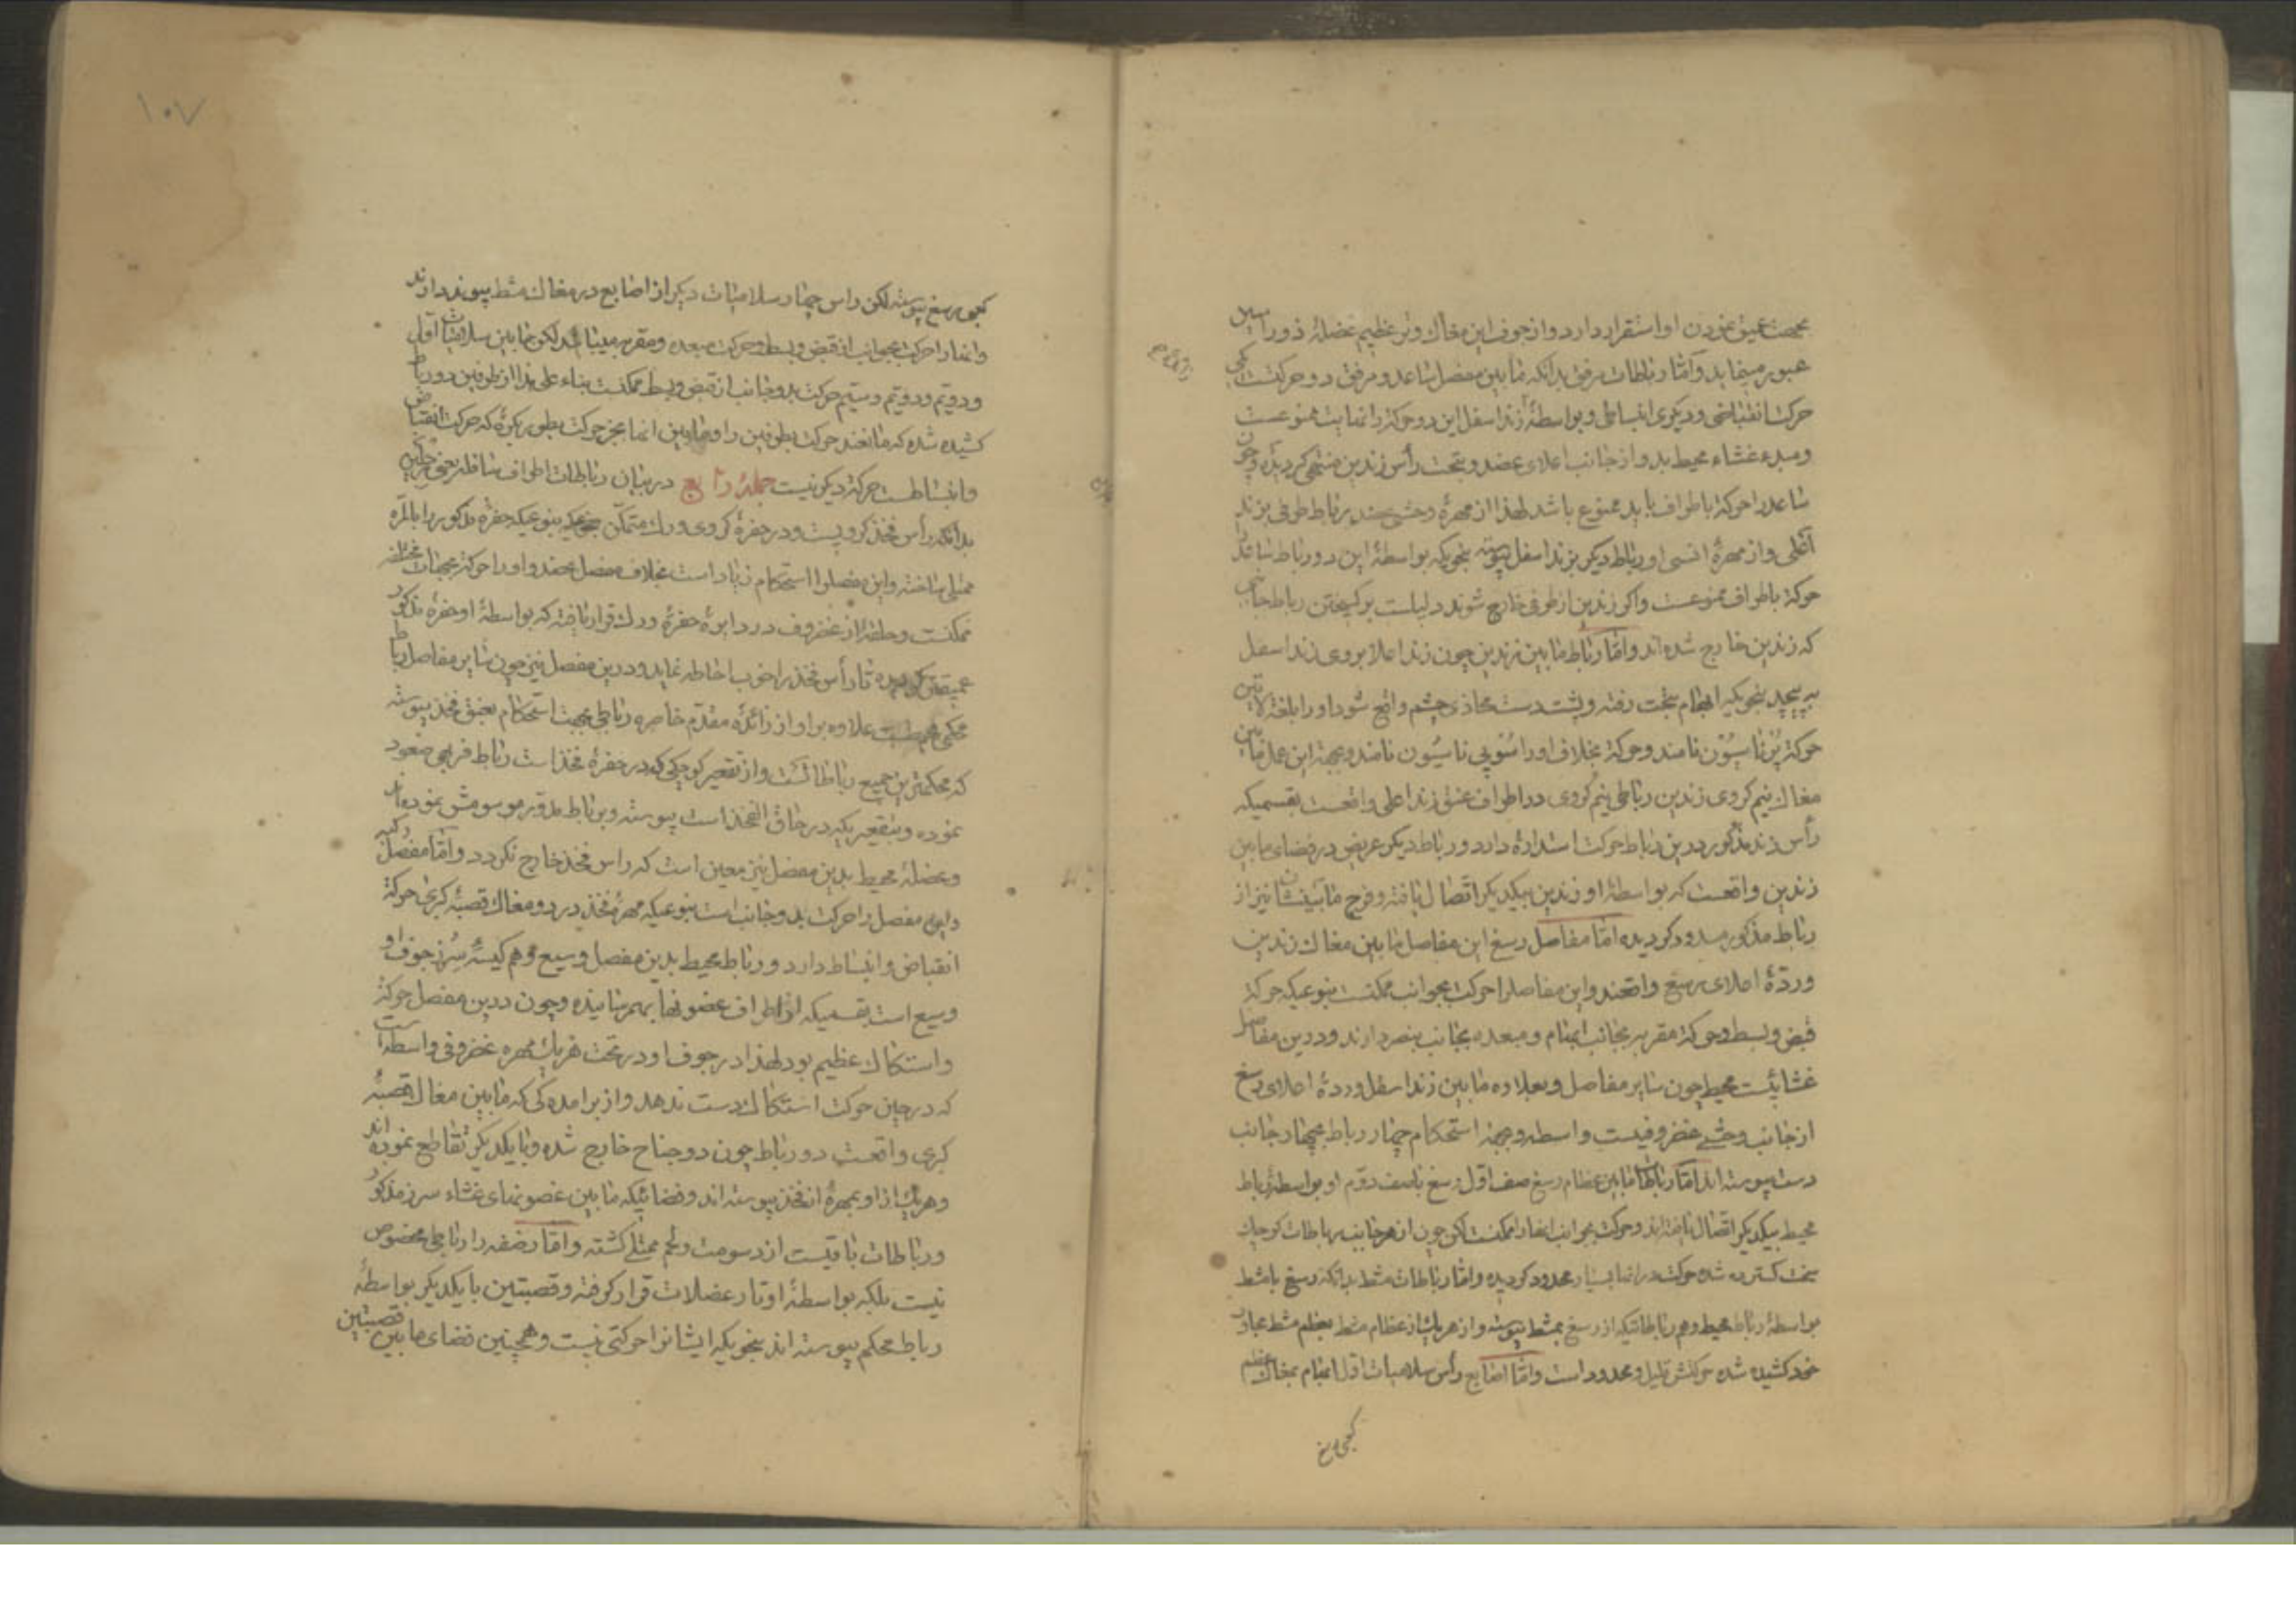 بجهت عمیق نمودن او استقرار دارد و از جوف این مغاك وتر عظیم عضلهٔ ذوراسین
عبور مینماید و امّا رباطات مرفق بدانکه مابین مفصل ساعد و مرفق دو حرکتست یکی
حرکت انقباضی و دیکری انبساطی و بواسطهٔ زند اسفل این دو حرکة را نهایت ممنوعست
ومبدء غشاء محیط بدو از جانب اعلای عضد و بتحت رأس زندین منتهی کردیده و چون
ساعد را حرکة باطراف باید ممنوع باشد لهذا از مهرهٔ وحشی عضد رباط طرفی بزند
اعلی و از مهرهٔ انسی او رباط دیکر بزند اسفل پیوسته بنحویکه بواسطهٔ این دو رباط ساعد را
حرکة باطراف ممنوعست و اکر زندین از طرفی خارج شوند دلیلست بر کسیختن رباط جانبی
که زندین خارج شده اند و امّا رباط مابین زندین چون زند اعلا بروی زند اسفل
به پیچد بنحویکه ابهام بتحت رفته و پشت دست محاذی چشم واقع شود او را بلغة لاتین
حرکة پُرُناسیُون نامند و حرکة بخلاف او را سُوپی ناسیُون نامند و بجهة این عمل مابین
مغاك نیم کروی زندین رباطی نیم کروی در اطراف عنق زند اعلی واقعست بقسمیکه
رأس زند مذکور درین رباط حرکت استدارهٔ دارد و رباط دیکر عریض در فضای مابین
زندین واقعست که بواسطهٔ او زندین بیکدیکر اتّصال یافته و فرج مابینشان نیز از
رباط مذکور مسدود کردیده امّا مفاصل رسغ این مفاصل مابین مغاك زندین
وردّهٔ اعلای رسغ واقعند و این مفاصل را حرکت بجوانب ممکنست بنوعیکه حرکة
قبض و بسط و حرکة مقربه بجانب ابهام و مبعده بجانب بنصر دارند و درین مفاصل
غشائیست محیط چون سایر مفاصل و بعلاوه مابین زند اسفل و ردهٔ اعلای رسغ
از جانب وحشی غضروفیست واسطه و بجهة استحکام چهار رباط بچهار جانب
دست پیوسته اند امّا رباط مابین عظام رسغ صف اوّل رسغ باصف دوّم او بواسطهٔ رباط
محیط بیکدیکر اتّصال یافته اند و حرکت بجوانب انها را ممکنست لکن چون از هر جانب رباطات کوچك
سخت کسترده شده حرکت در انها بسیار محدود کردیده و امّا رباطات مشط بدانکه رسغ بامشط
بواسطهٔ رباط محیط و هم رباطاتیکه از رسغ بمشط پیوسته و از هریك از عظام مشط بعظم مشط مجاور
خود کشیده شده حرکتش قلیل و محدود است و امّا اصابع رأس سلامیات اوّل ابهام بمغاك عظم
کعبی رسغ
۱۰۷
کعبی رسغ پیوسته لکن راس چهار سلامیات دیکر از اصابع در مغاك مشط پیوند دارند
وانها را حرکت بجوانب از قبض و بسط و حرکت مبعده و مقربه میباشد لکن مابین سلامیات اوّل
و دویّم و دویّم و سیّم حرکت بدو جانب از قبض و بسط ممکنست بناء علی هذا از طرفین دو رباط
کشیده شده که مانعند حرکت بطرفین را و مابین انها بجز حرکت بطور بکرهٔ که حرکت انقباض
وانبساطست حرکة دیکر نیست جملهٔ رابع در بیان رباطات اطراف سافله یعنی رجلین
بدانکه رأس فخذ کرویست و در حفرهٔ کروی ورك متمکّن بنوعیکه حفرهٔ مذکور را بالمرّه
ممتلی ساخته و این مفصل را استحکام زیاد است بخلاف مفصل عضد و او را حرکة بجهات مختلفه
ممکنست و حلقهٔ از غضروف در دایرهٔ حفرهٔ ورك قرار یافته که بواسطهٔ او حفرهٔ مذکور
عمیقتر کردیده تا رأس فخذ را خوب احاطه نماید و درین مفصل نیز چون سایر مفاصل رباط
محکمی محیطست علاوه براو از زائدهٔ مقدّم خاصره رباطی بجهت استحکام بعنق فخذ پیوسته
که محکمترین جمیع رباطاتست و از تقعیر کوچکی که در حفرهٔ فخذ است رباط فربهی صعود
نموده و بتقعیریکه در حاق الفخذ است پیوسته و برباط مدوّر موسومش نموده اند
وعضلهٔ محیط بدین مفصل نیز معین است که راس فخذ خارج نکردد و امّا مفصل رکبه
واین مفصل را حرکت بدو جانب است بنوعیکه مهرهٔ فخذ در دو مغاك قصبهٔ کبری حرکة
انقباض و انبساط دارد و رباط محیط بدین مفصل وسیع و هم کیسهٔ سُرُز جوف او
وسیع است بقسمیکه از اطراف غضونها بهمرسانیده و چون درین مفصل حرکة
واستکاك عظیم بود لهذا در جوف او در تحت هریك مهره غضروفی واسطه است
که در حین حرکت استکاك دست ندهد و از برامده کی که مابین مغاك قصبهٔ
کبری واقعست دو رباط چون دو جناح خارج شده و با یکدیکر تقاطع نموده اند
وهریك از او بمهرهٔ از فخذ پیوسته اند و فضائیکه مابین غضونهای غشاء سرز مذکور
ورباطات باقیست از دسومت و لحم ممتلی کشته و امّا رضفه را رباطی مخصوص
نیست بلکه بواسطهٔ اوتار عضلات قرار کرفته و قصبتین با یکدیکر بواسطهٔ
رباط محکم پیوسته اند بنحویکه ایشانرا حرکتی نیست و همچنین فضای مابین قصبتین